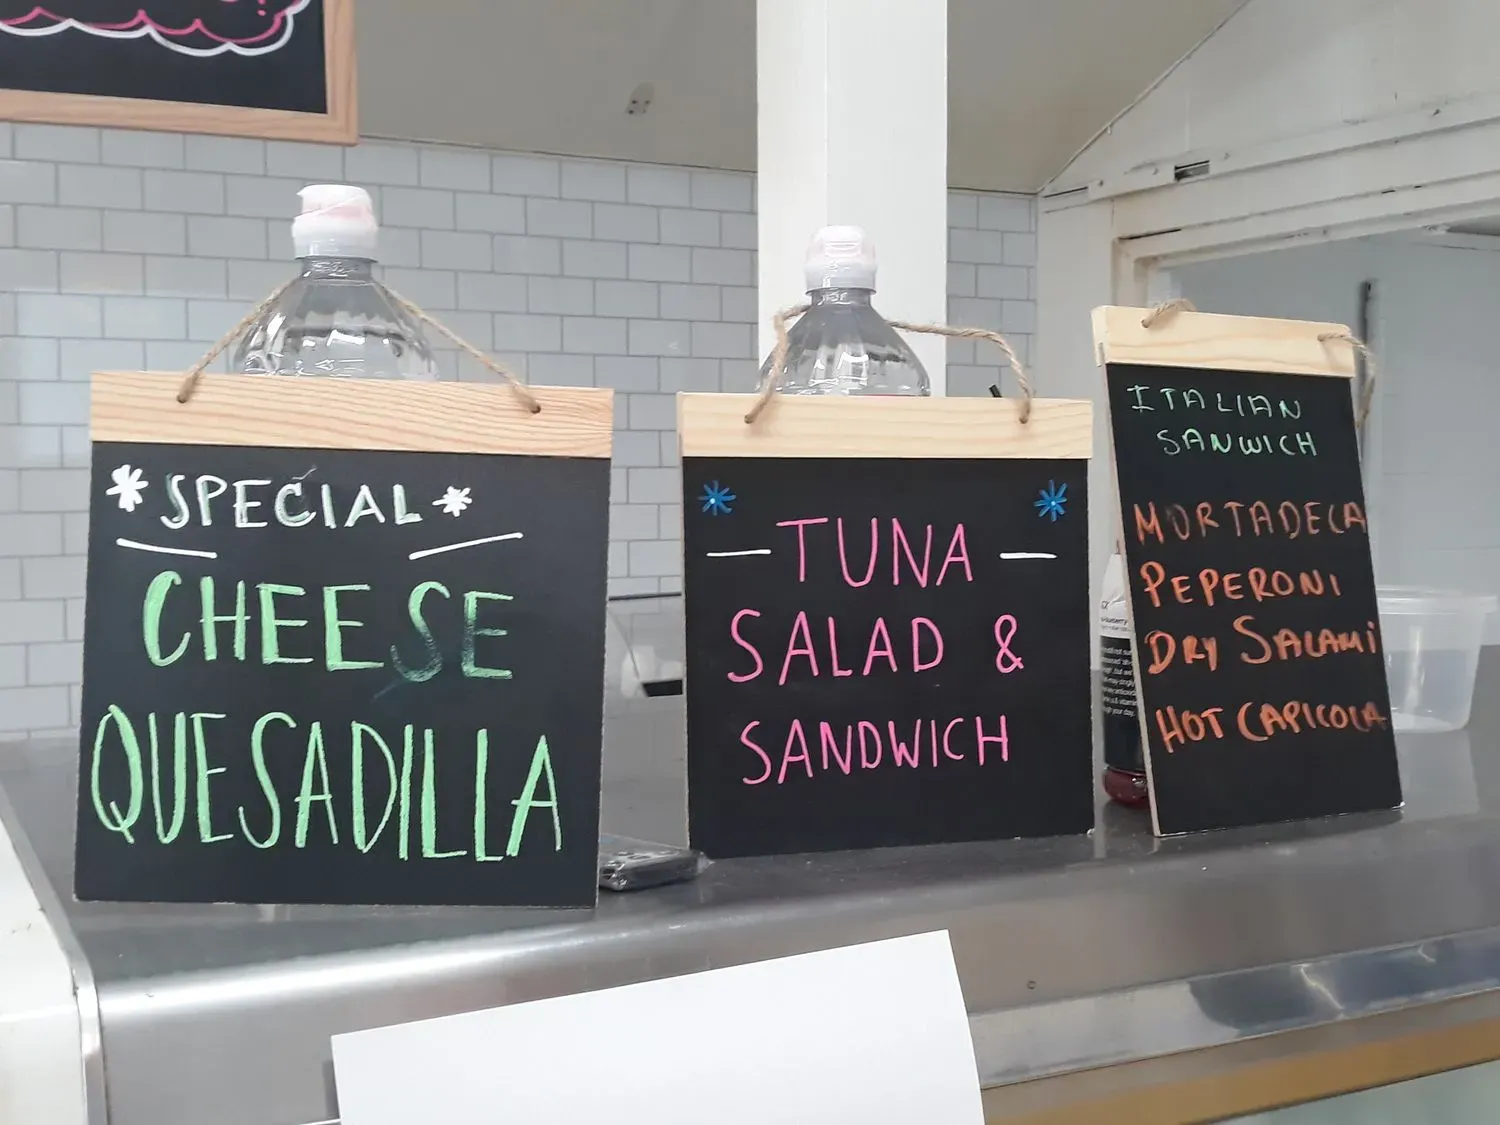 *SPECIAL*
CHEESE
QUESADILLA
TUNA
SALAD &
SANDWICH
ITALIAN
SANWICH
MORTADELA
PEPERONI
DRY SALAMI
HOT CAPICOLA